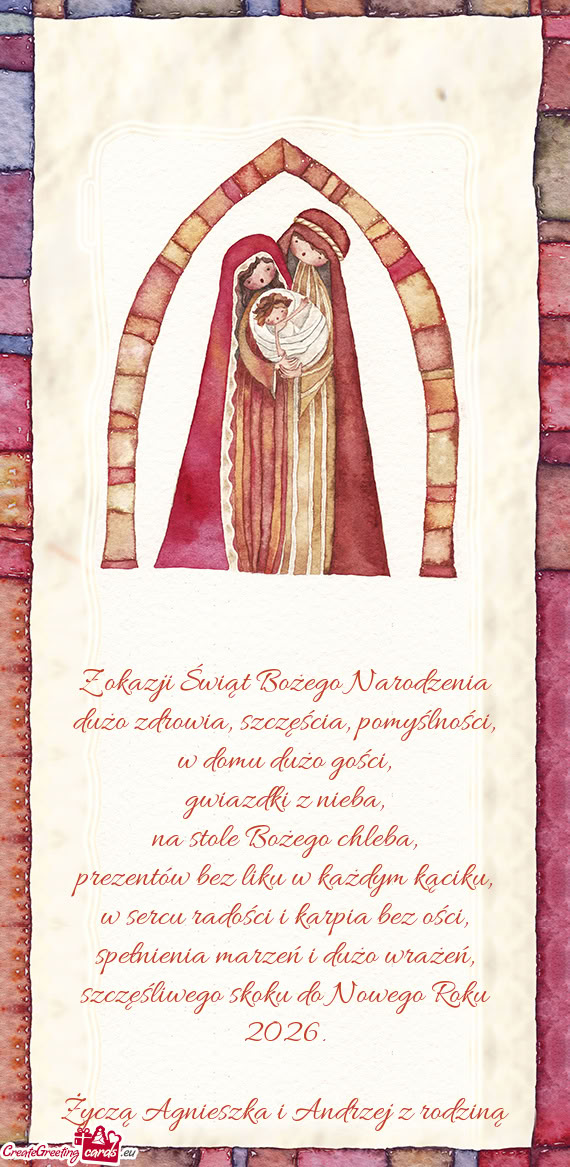 Z okazji Świąt Bożego Narodzenia
dużo zdrowia, szczęścia, pomyślności,
w domu dużo gości,
gwiazdki z nieba,
na stole Bożego chleba,
prezentów bez liku w każdym kąciku,
w sercu radości i karpia bez ości,
spełnienia marzeń i dużo wrażeń,
szczęśliwego skoku do Nowego Roku
2026.
Życzą Agnieszka i Andrzej z rodziną
CreateGreeting cards .eu